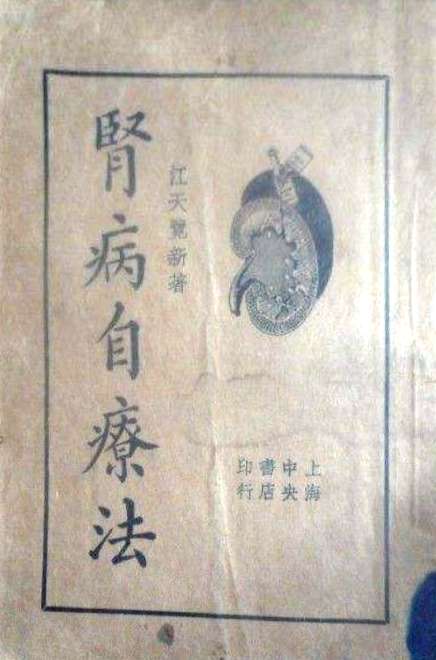 上海
中央
書店
印行
江天覽新著
腎病自療法